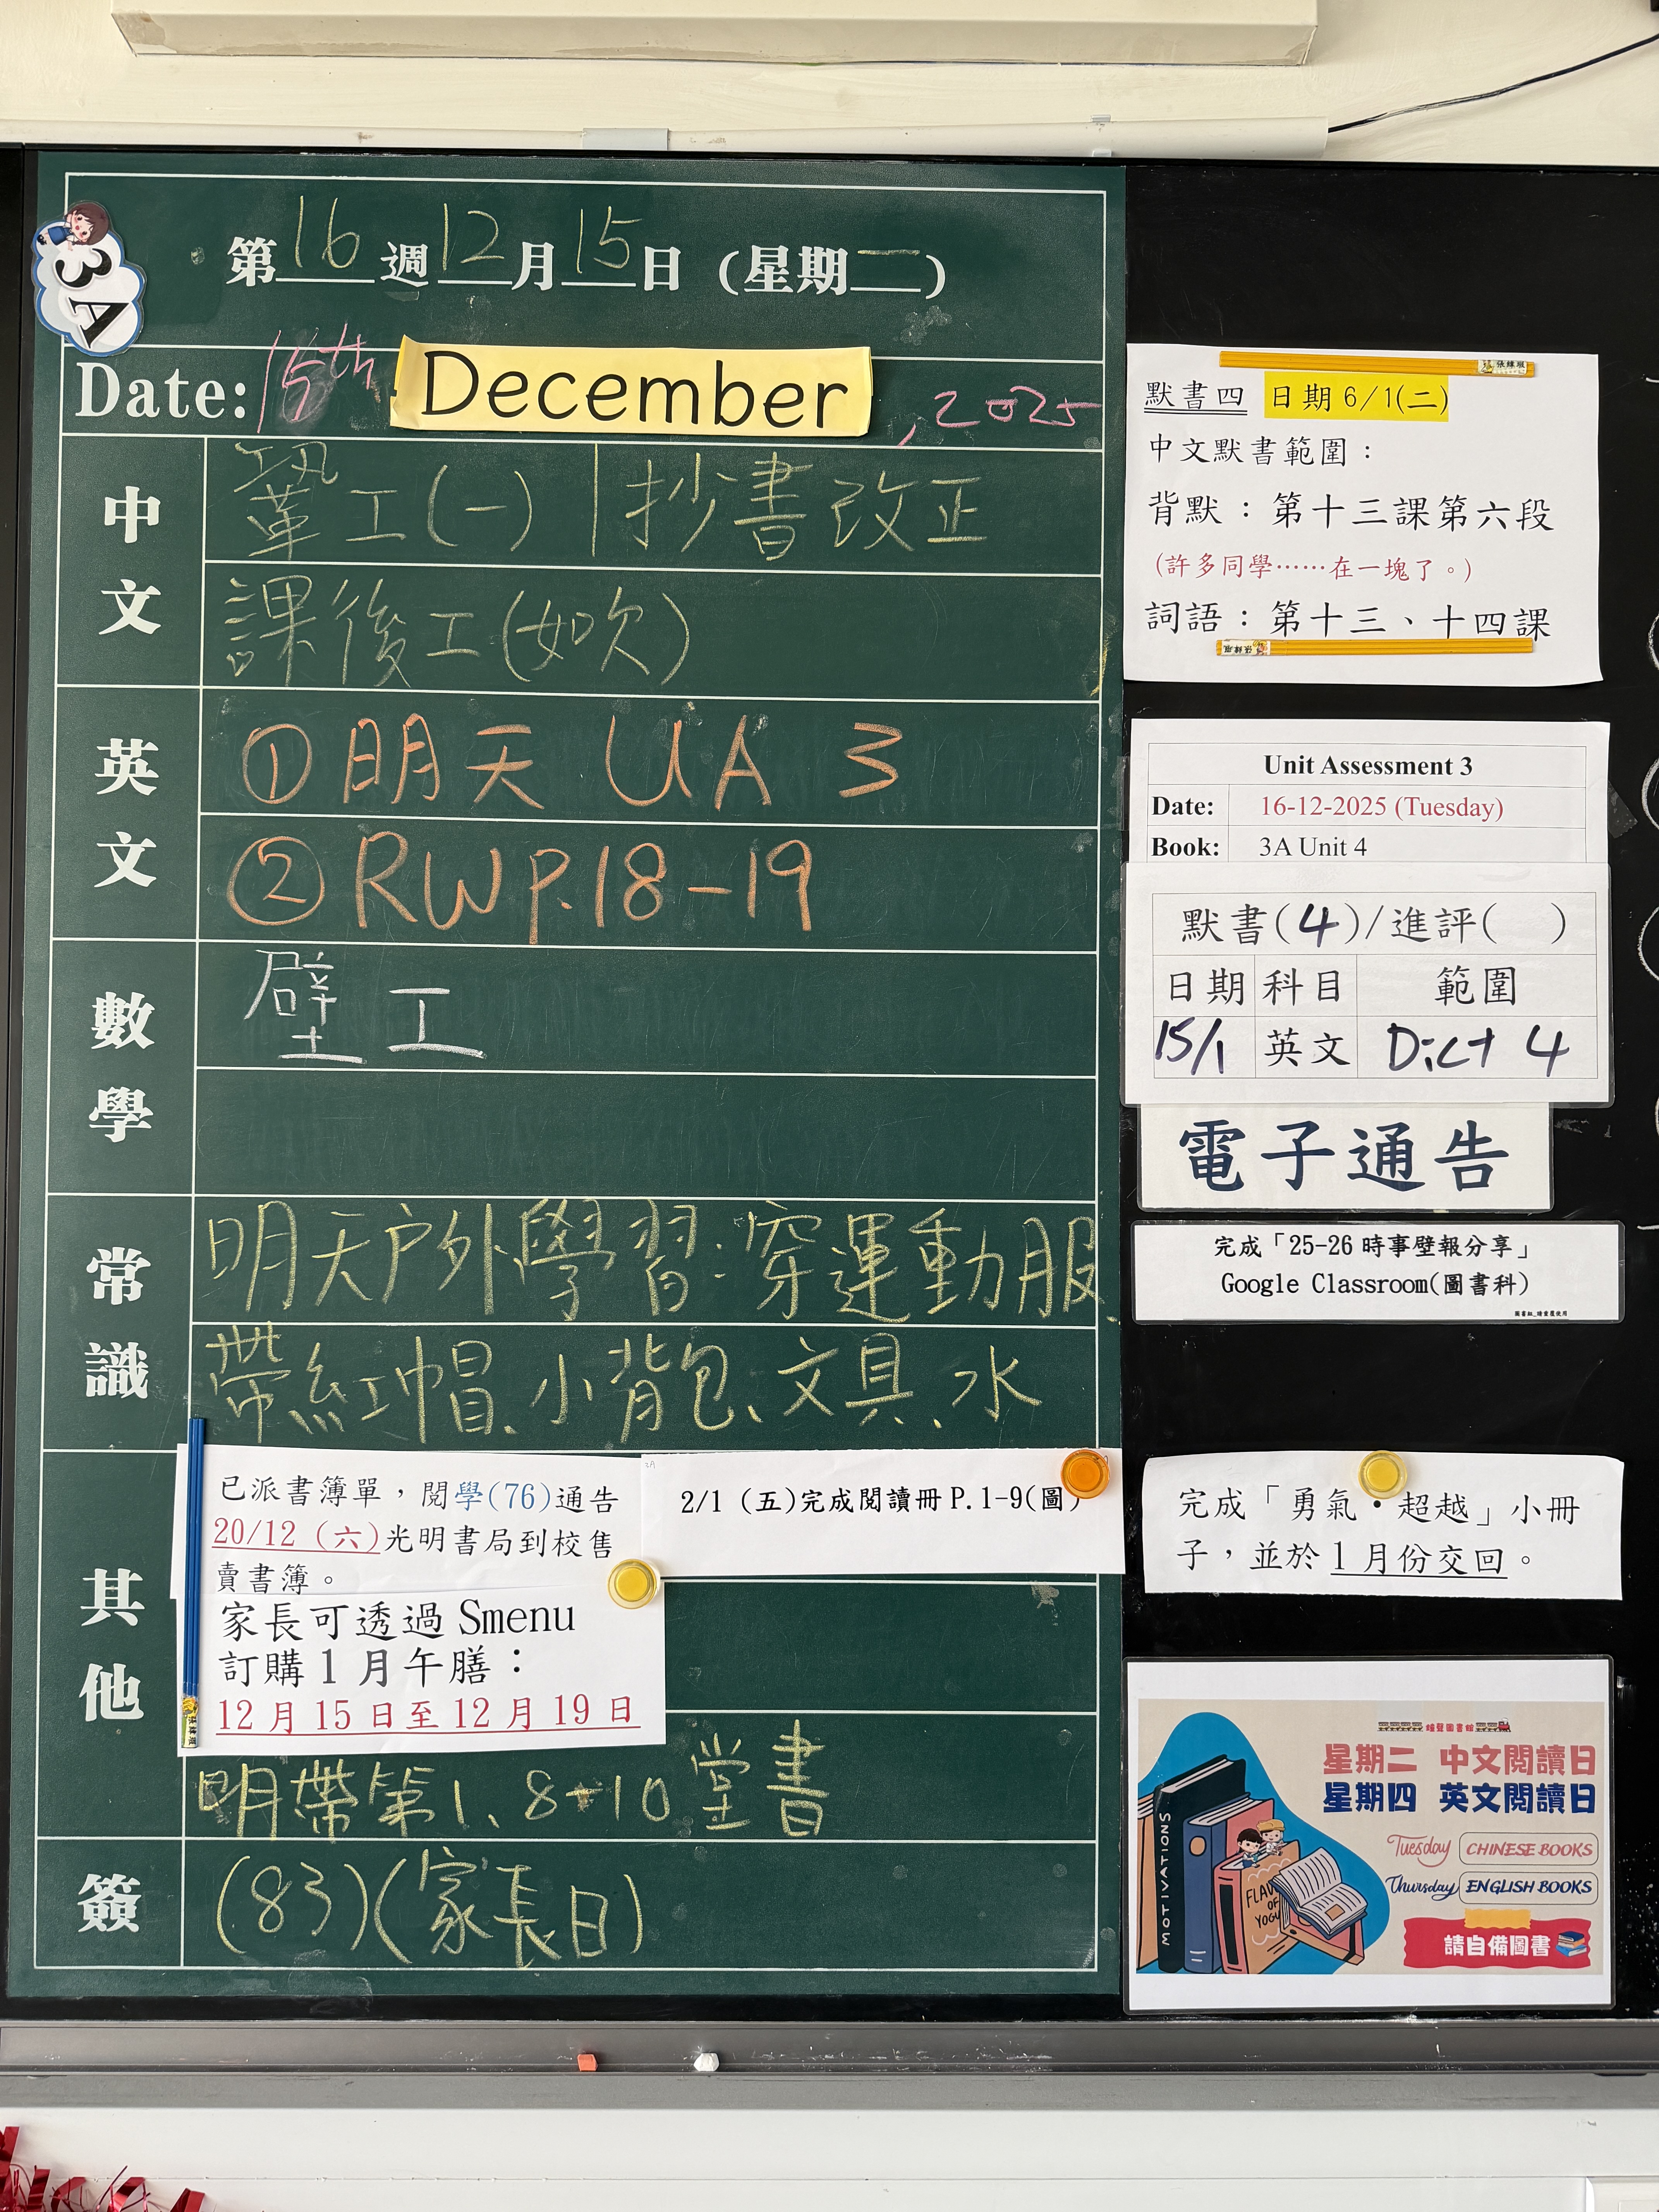 3A
第16週12月15日(星期一)
Date: 15th December, 2025
中文
鞏工(一) | 抄書改正
課後工(如欠)
英文
① 明天 UA 3
② RW P.18-19
數學
壁工
常識
明天户外學習:穿運動服
帶紅帽、小背包、文具、水
其他
已派書簿單,閱學(76)通告
20/12 (六)光明書局到校售
賣書簿。
家長可透過 Smenu
訂購 1 月午膳:
12 月 15 日至 12 月 19 日
3A
2/1 (五)完成閱讀冊 P.1-9(圖)
明帶第1、8-10堂書
簽
(83)(家長日)
默書四 日期 6/1(二)
中文默書範圍:
背默:第十三課第六段
(許多同學……在一塊了。)
詞語:第十三、十四課
Unit Assessment 3
Date: 16-12-2025 (Tuesday)
Book: 3A Unit 4
默書(4)/進評( )
日期 科目 範圍
15/1 英文 Dict 4
電子通告
完成「25-26 時事壁報分享」
Google Classroom(圖書科)
完成「勇氣·超越」小冊
子,並於 1 月份交回。
星期二 中文閱讀日
星期四 英文閱讀日
Tuesday CHINESE BOOKS
Thursday ENGLISH BOOKS
請自備圖書
MOTIVATIONS